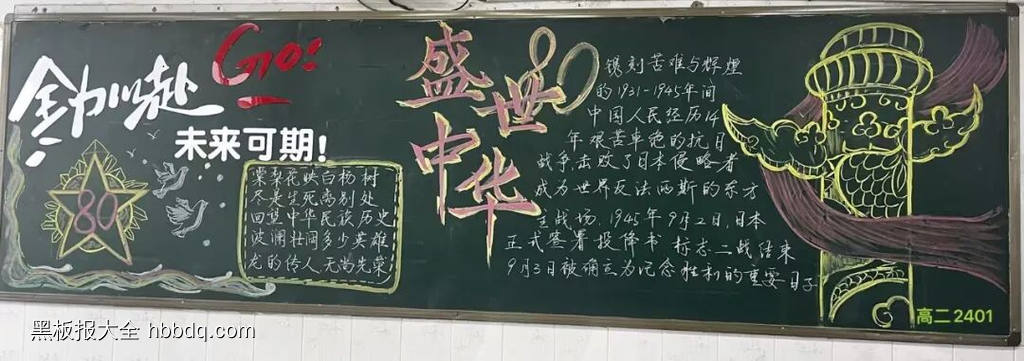 全力以赴
Go!
未来可期!
80
棠梨花映白杨树
尽是生死离别处
回望中华民族历史
波澜壮阔多少英雄
龙的传人,无尚光荣
盛世
中华
80
镌刻苦难与辉煌
的1931-1945年间
中国人民经历14
年艰苦卓绝的抗日
战争,击败了日本侵略者
成为世界反法西斯的东方
主战场。1945年9月2日,日本
正式签署投降书 标志二战结束
9月3日被确立为纪念胜利的重要日子
高二2401
黑板报大全 hbbdq.com